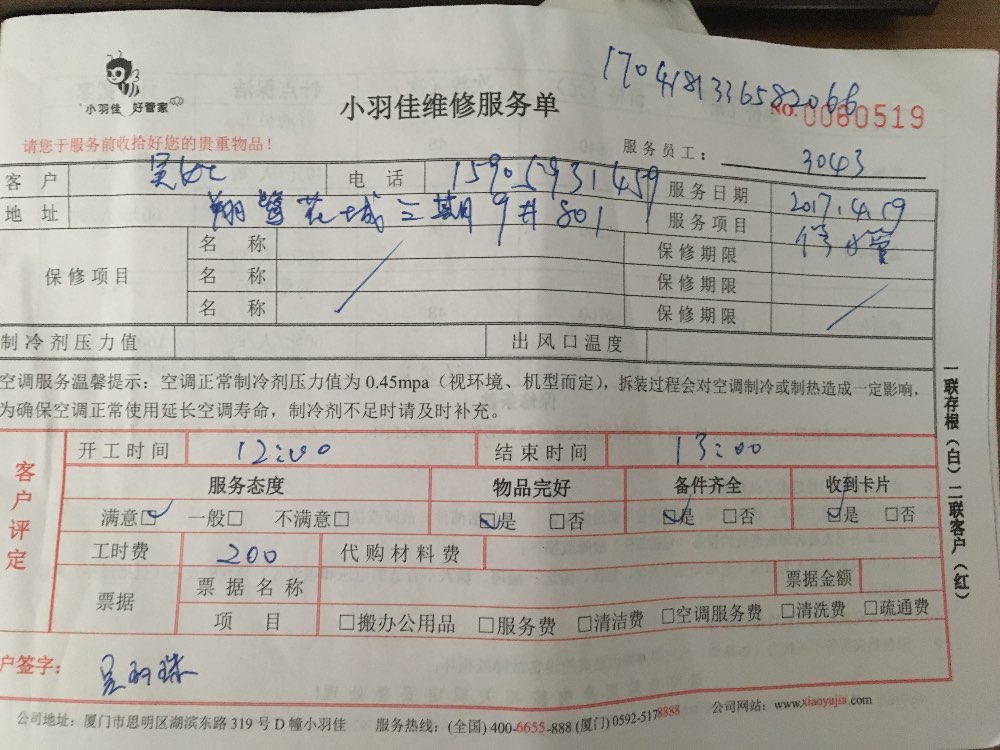 小羽佳 好管家
小羽佳维修服务单
1704181336582066
NO. 0060519
请您于服务前收拾好您的贵重物品!
服务员工: 3043
客户 电话 15905931459 服务日期 2017.4.19
地址 翔鹭花城三期9#801 服务项目 修水管
保修项目 名称 保修期限
名称 保修期限
名称 保修期限
制冷剂压力值 出风口温度
空调服务温馨提示:空调正常制冷剂压力值为0.45mpa(视环境、机型而定),拆装过程会对空调制冷或制热造成一定影响,
为确保空调正常使用延长空调寿命,制冷剂不足时请及时补充。
客户评定
开工时间 12:00 结束时间 13:00
服务态度 物品完好 备件齐全 收到卡片
满意☑ 一般□ 不满意□ ☑是 □否 ☑是 □否 ☑是 □否
工时费 200 代购材料费
票据 票据名称 票据金额
项目 □搬办公用品 □服务费 □清洁费 □空调服务费 □清洗费 □疏通费
户签字:
公司地址:厦门市思明区湖滨东路319号D幢小羽佳 服务热线:(全国)400-6655-888(厦门)0592-5178888 公司网站:www.xiaoyujia.com
一联存根(白)二联客户(红)